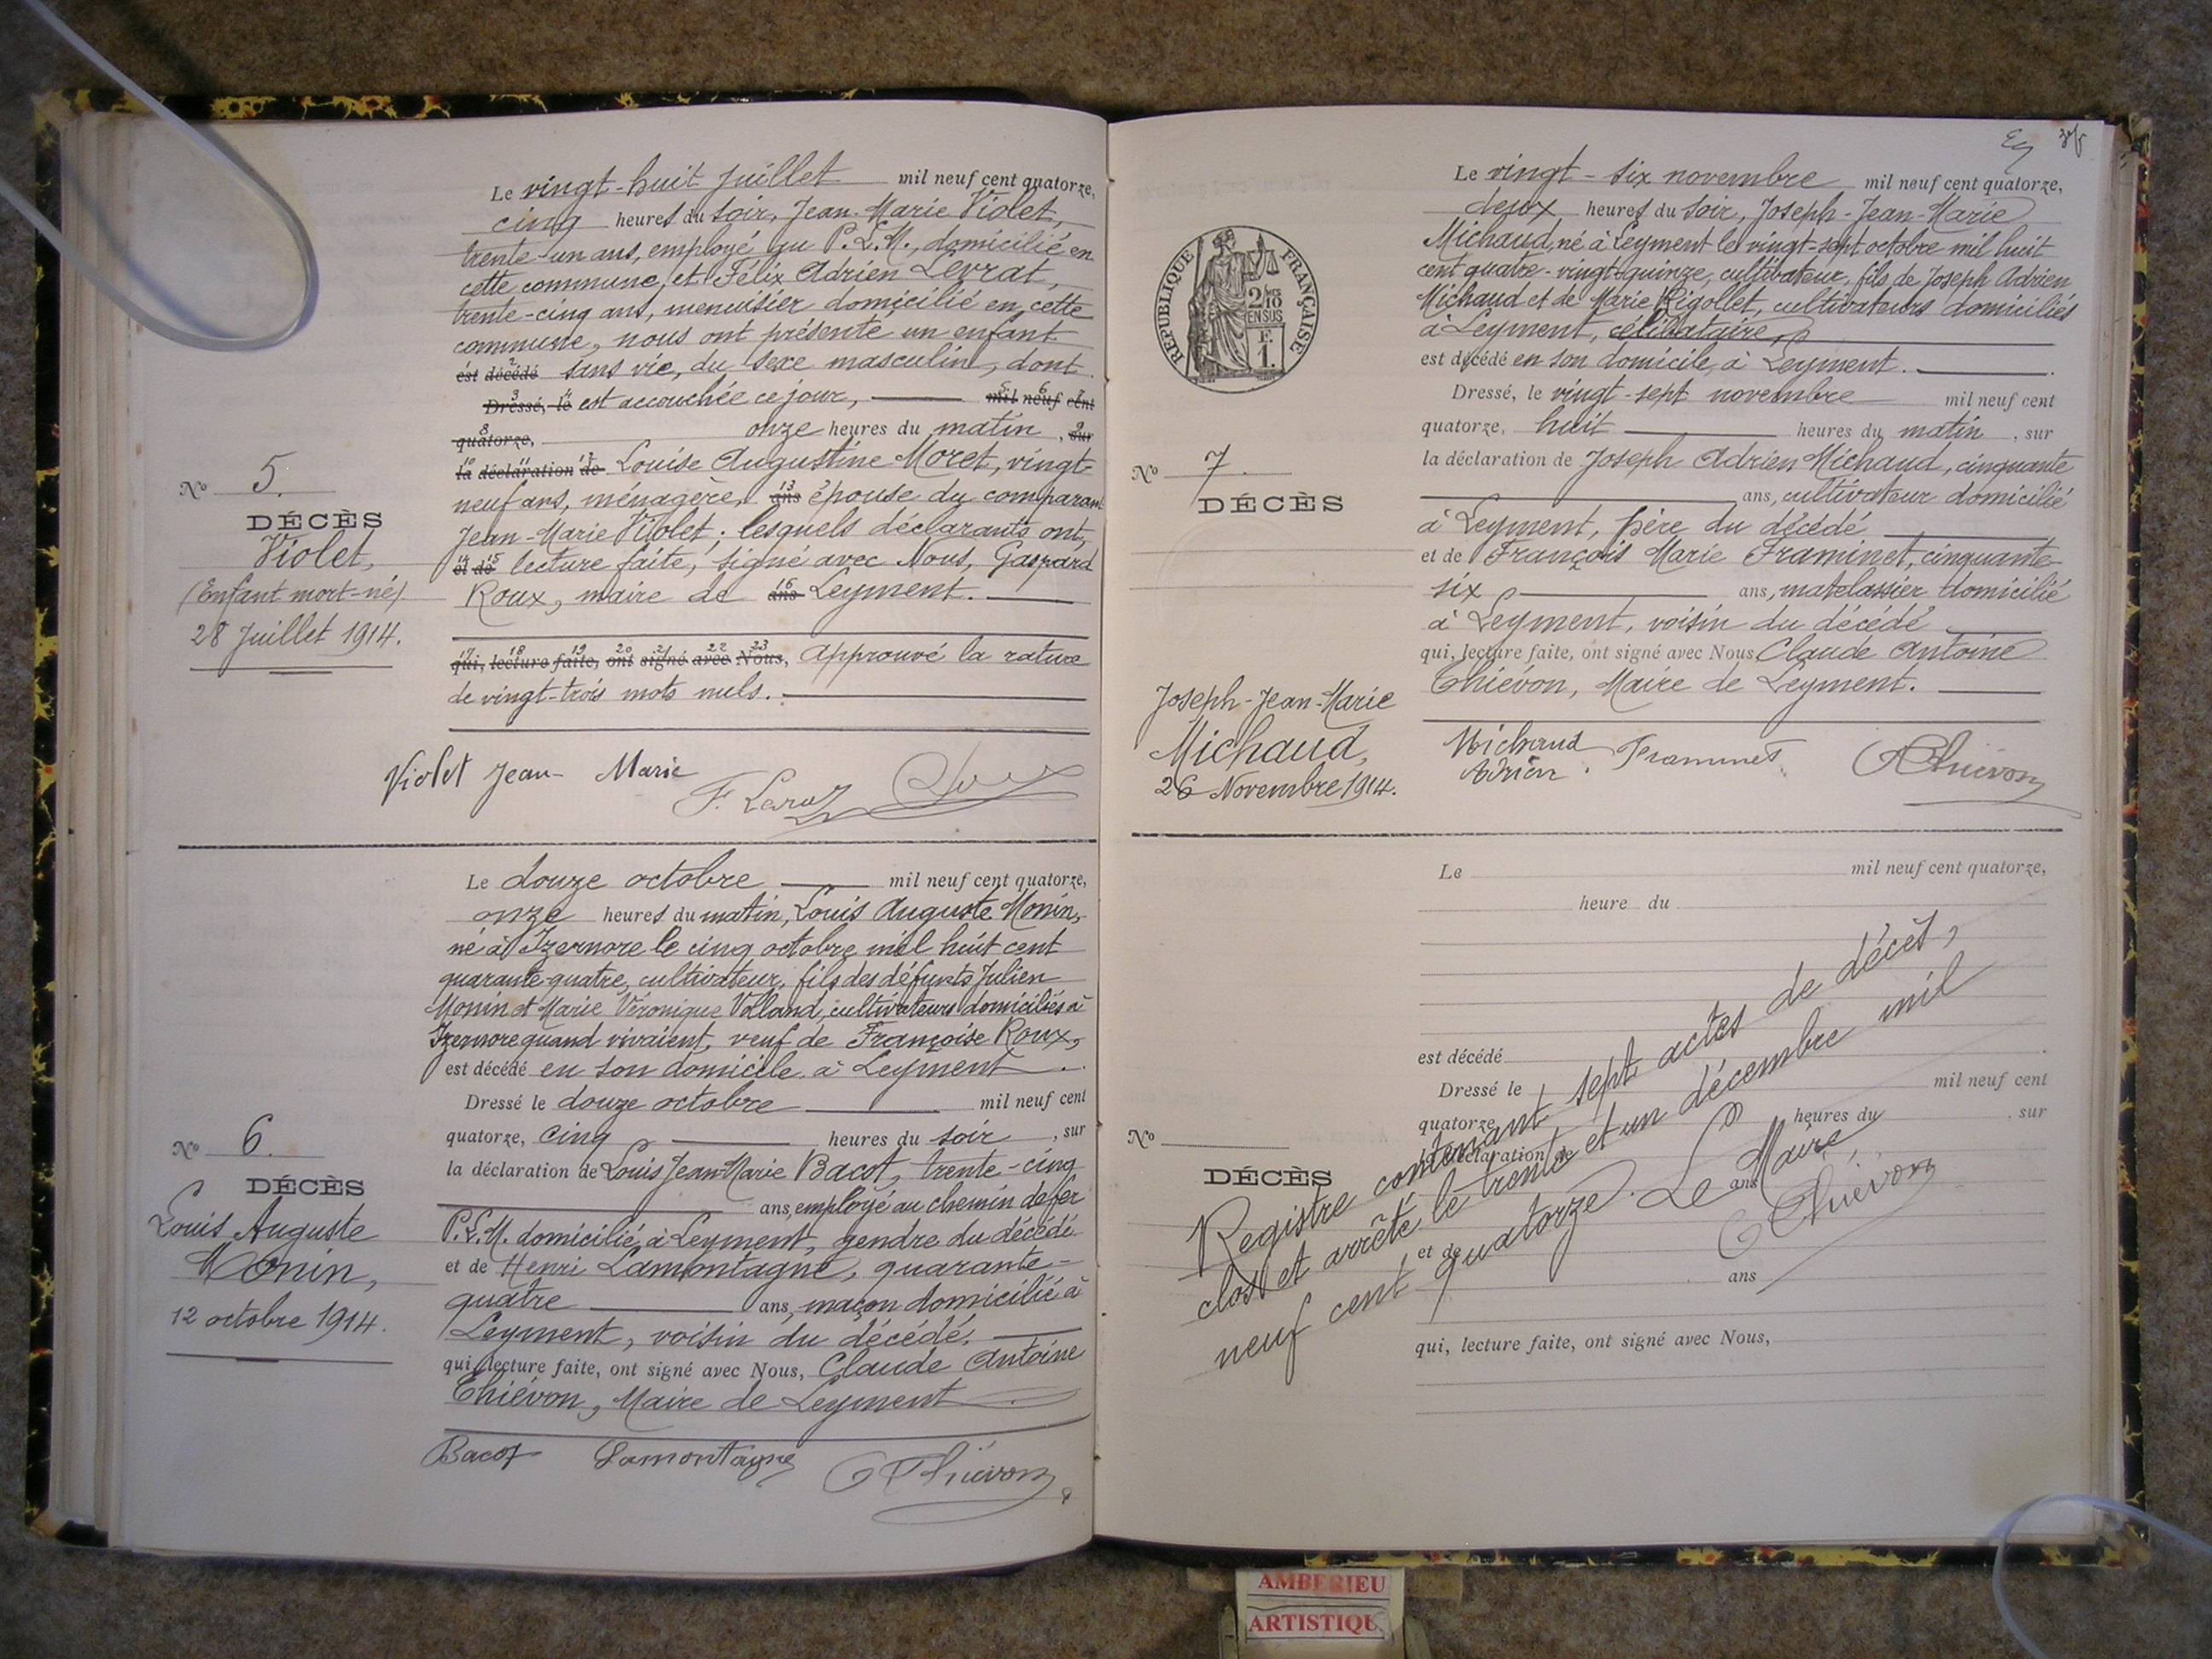 Le vingt-huit Juillet mil neuf cent quatorze,
cinq heures du soir, Jean-Marie Violet,
trente-un ans, employé au P.L.M., domicilié en
cette commune, et Félix Adrien Levrat,
trente-cinq ans, menuisier domicilié en cette
commune, nous ont présenté un enfant
est décédé sans vie, du sexe masculin, dont
Dressé, le est accouchée ce jour, mil neuf cent
quatorze, onze heures du matin, sur
la déclaration de Louise Augustine Moret, vingt-
neuf ans, ménagère, ans épouse du comparant
Jean-Marie Violet; lesquels déclarants ont,
et de lecture faite, signé avec Nous, Gaspard
Roux, maire de ans Leyment.
qui, lecture faite, ont signé avec Nous, Approuvé la rature
de vingt-trois mots nuls.
No 5.
DÉCÈS
Violet,
(Enfant mort-né)
28 Juillet 1914.
Violet Jean-Marie
Le douze octobre mil neuf cent quatorze,
onze heures du matin, Louis Auguste Monin,
né à Izernore le cinq octobre mil huit cent
quarante-quatre, cultivateur, fils des défunts Julien
Monin et Marie Véronique Volland, cultivateurs domiciliés à
Izernore quand vivaient, veuf de Françoise Roux,
est décédé en son domicile à Leyment.
Dressé le douze octobre mil neuf cent
quatorze, cinq heures du soir, sur
la déclaration de Louis Jean Marie Bacot, trente-cinq
ans, employé au chemin de fer
P.L.M. domicilié à Leyment, gendre du décédé
et de Henri Lamontagne, quarante-
quatre ans, maçon domicilié à
Leyment, voisin du décédé.
qui, lecture faite, ont signé avec Nous, Claude Antoine
Thiévon, Maire de Leyment
No 6.
DÉCÈS
Louis Auguste
Monin,
12 octobre 1914.
Bacot Lamontagne CThiévon
Le vingt-six novembre mil neuf cent quatorze,
deux heures du soir, Joseph-Jean-Marie
Michaud, né à Leyment le vingt-sept octobre mil huit
cent quatre-vingt-quinze, cultivateur, fils de Joseph Adrien
Michaud et de Marie Rigollet, cultivateurs domiciliés
à Leyment, célibataire,
est décédé en son domicile, à Leyment.
Dressé, le vingt-sept novembre mil neuf cent
quatorze, huit heures du matin, sur
la déclaration de Joseph Adrien Michaud, cinquante
ans, cultivateur domicilié
à Leyment, père du décédé
et de François Marie Framinet, cinquante-
six ans, matelassier domicilié
à Leyment, voisin du décédé
qui, lecture faite, ont signé avec Nous Claude Antoine
Thiévon, Maire de Leyment.
RÉPUBLIQUE FRANÇAISE
2/10
EN SUS
F.
1.
No 7.
DÉCÈS
Joseph-Jean-Marie
Michaud,
26 Novembre 1914.
Michaud
Adrien. Framinet CThiévon
Le mil neuf cent quatorze,
heure du
est décédé
Dressé le mil neuf cent
quatorze, heures du , sur
la déclaration de
ans
et de
ans
qui, lecture faite, ont signé avec Nous,
No
DÉCÈS
Registre contenant sept actes de décès,
clos et arrêté le trente et un décembre mil
neuf cent quatorze. Le Maire,
CThiévon
AMBERIEU
ARTISTIQU